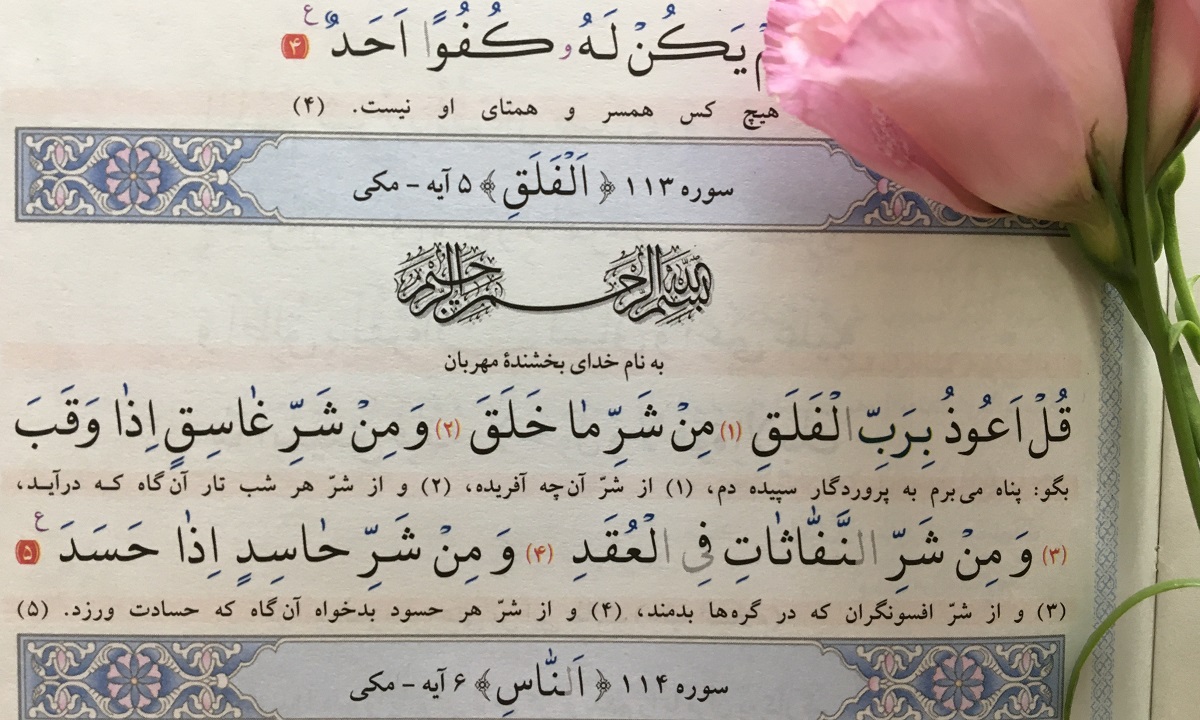 يَكُنْ لَهُ و كُفُوًا اَحَدٌ ۴ ع
هیچ کس همسر و همتای او نیست. (۴)
سوره ۱۱۳ ﴿اَلْفَلَقِ﴾ ۵ آیه - مکی
بسم الله الرحمن الرحیم
به نام خدای بخشندهٔ مهربان
قُلْ اَعُوذُ بِرَبِّ الْفَلَقِ (۱) مِنْ شَرِّ مٰا خَلَقَ (۲) وَ مِنْ شَرِّ غٰاسِقٍ اِذٰا وَقَبَ
بگو: پناه می‌برم به پروردگار سپیده دم، (۱) از شرّ آن‌چه آفریده، (۲) و از شرّ هر شب تار آن‌گاه که درآید،
(۳) وَ مِنْ شَرِّ النَّفّٰاثٰاتِ فِی الْعُقَدِ (۴) وَ مِنْ شَرِّ حٰاسِدٍ اِذٰا حَسَدَ ۵ ع
(۳) و از شرّ افسونگران که در گره‌ها بدمند، (۴) و از شرّ هر حسود بدخواه آن‌گاه که حسادت ورزد. (۵)
سوره ۱۱۴ ﴿اَلنّٰاسِ﴾ ۶ آیه - مکی